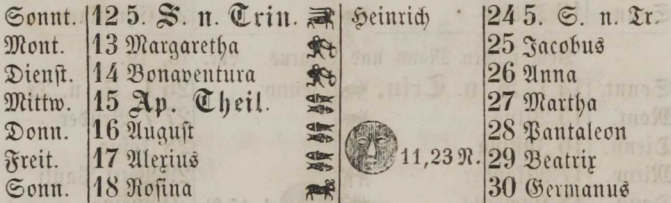 Sonnt. 12 5. S. n. Trin. Heinrich 24 5. S. n. Tr.
Mont. 13 Margaretha 25 Jacobus
Dienſt. 14 Bonaventura 26 Anna
Mittw. 15 Ap. Theil. 27 Martha
Donn. 16 Auguſt 28 Pantaleon
Freit. 17 Alexius 11,23 N. 29 Beatrix
Sonn. 18 Roſina 30 Germanus